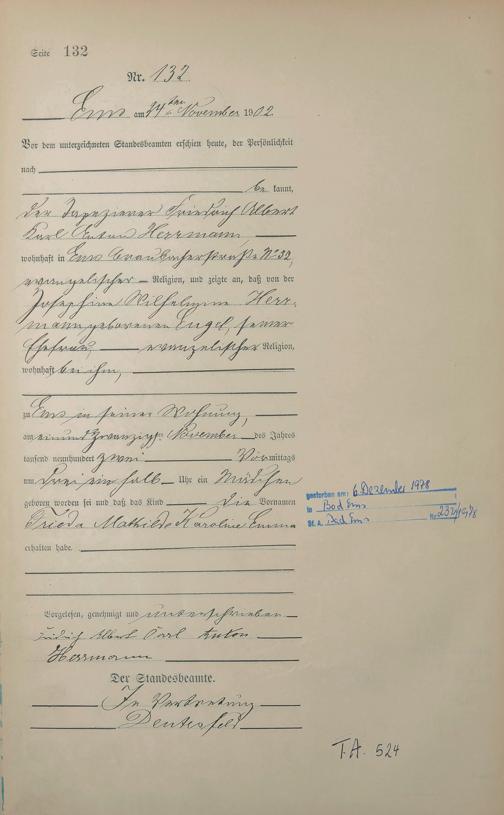 Seite 132
Nr. 132.
Ems am 24ten November 1902
Vor dem unterzeichneten Standesbeamten erschien heute, der Persönlichkeit
nach
be kannt,
der Tapezierer Friedrich Albert
Karl Anton Herrmann,
wohnhaft in Ems Braubacherstraße No 32,
evangelischer Religion, und zeigte an, daß von der
Josephine Wilhelmine Herr-
mann geborenen Engel, seiner
Ehefrau, evangelischer Religion,
wohnhaft bei ihm,
zu Ems in seiner Wohnung,
am einundzwanzigsten November des Jahres
tausend neunhundert zwei Vormittags
um drei ein halb Uhr ein Mädchen
geboren worden sei und daß das Kind die Vornamen
Frieda Mathilde Karoline Emma
erhalten habe.
gestorben am: 6. Dezember 1978
in Bad Ems
St. A. Bad Ems Nr. 232/1978
Vorgelesen, genehmigt und unterschrieben
Fridrich Albert Carl Anton
Herrmann
Der Standesbeamte.
In Vertretung
T.A. 524